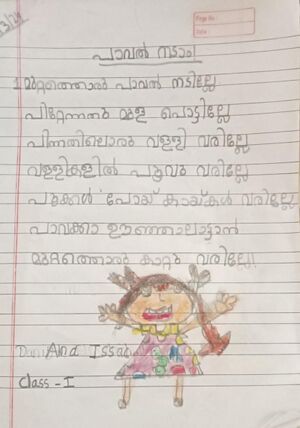 3/24
Page No :
Date :
പാവൽ നടാം!
1 മുറ്റത്തൊരു പാവൽ നടില്ലേ
പിറ്റേന്നതു മുള പൊട്ടില്ലേ
പിന്നതിലൊരു വള്ളി വരില്ലേ
വള്ളികളിൽ പൂവു വരില്ലേ
പൂക്കൾ പോയ് കായ്കൾ വരില്ലേ
പാവക്കാ ഊഞ്ഞാലാട്ടാൻ
മുറ്റത്തൊരു കാറ്റു വരില്ലേ!!
And Issa
Class - I